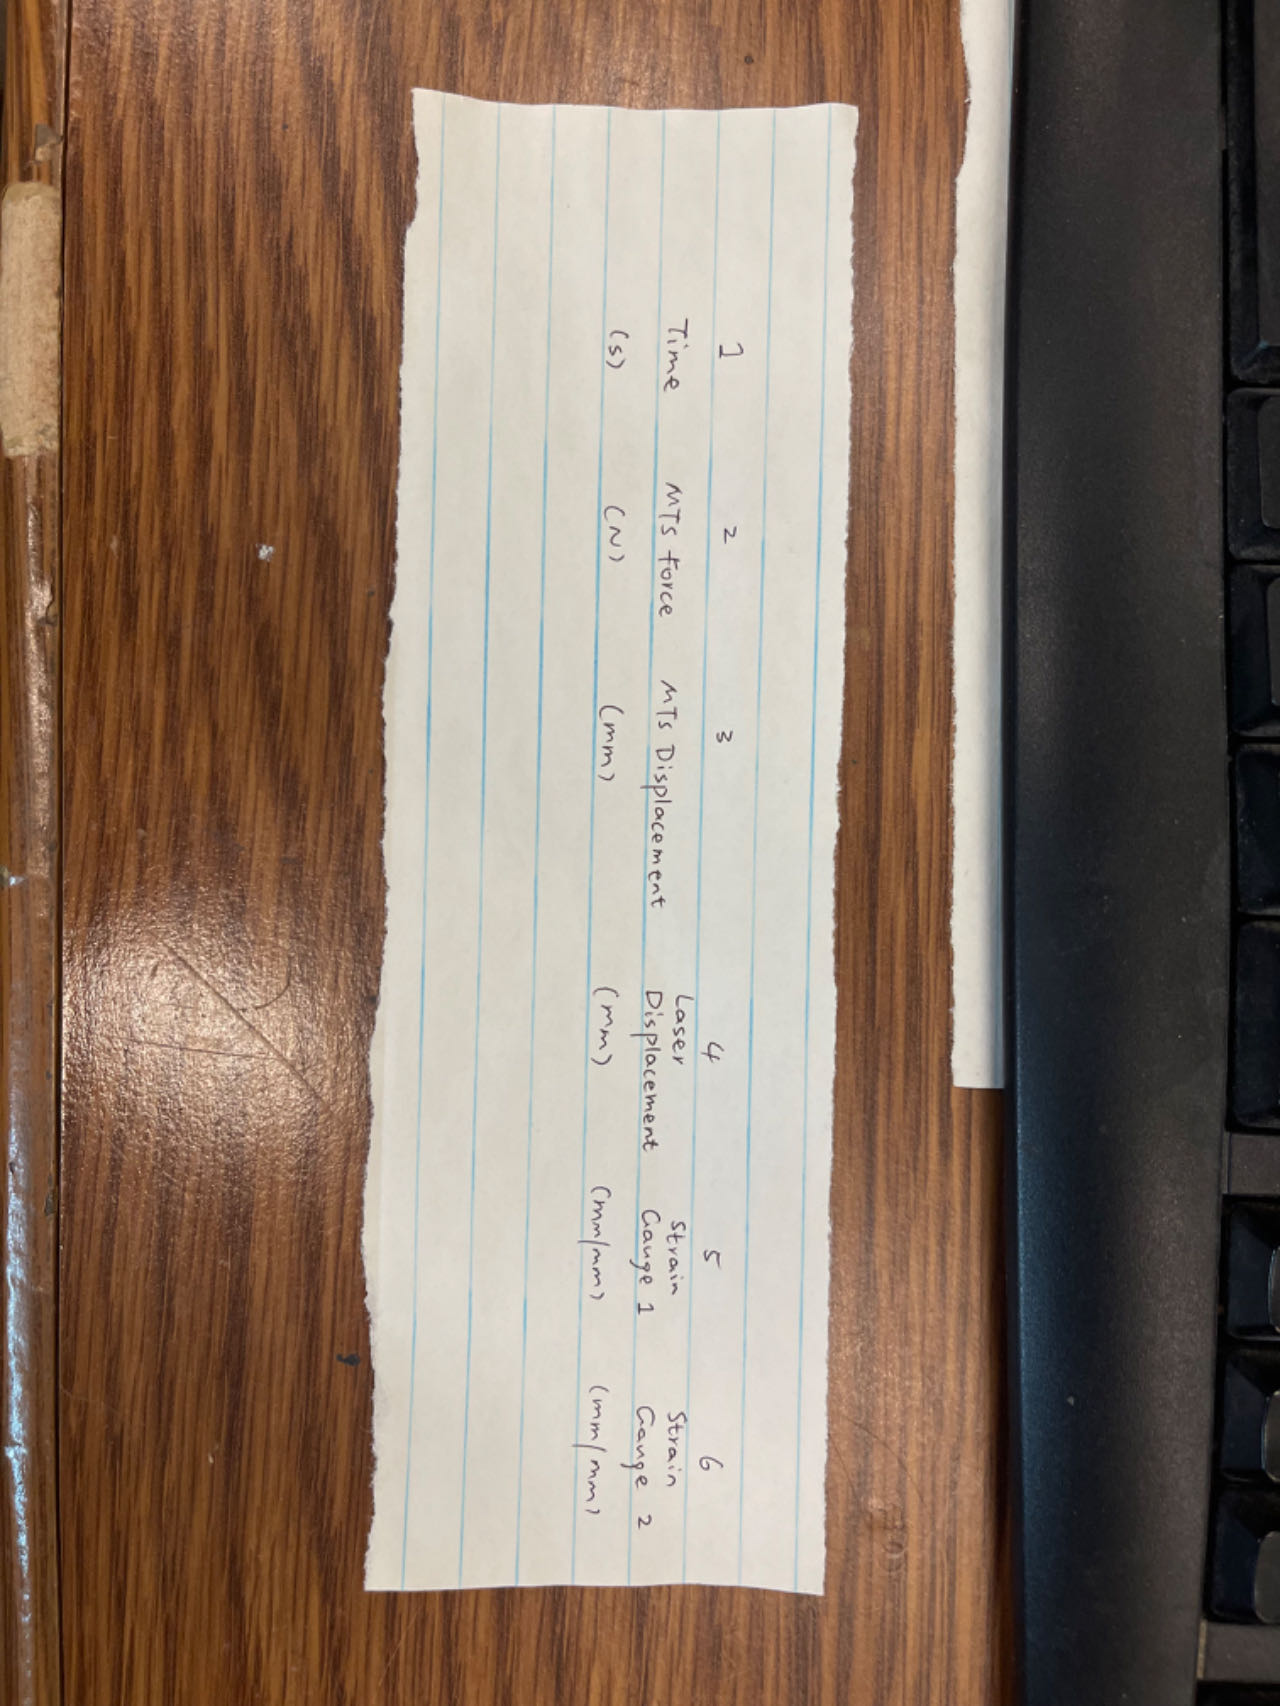 1 2 3 4 5 6
Time MTS Force MTS Displacement Laser Displacement Strain Gauge 1 Strain Gauge 2
(s) (N) (mm) (mm) (mm/mm) (mm/mm)